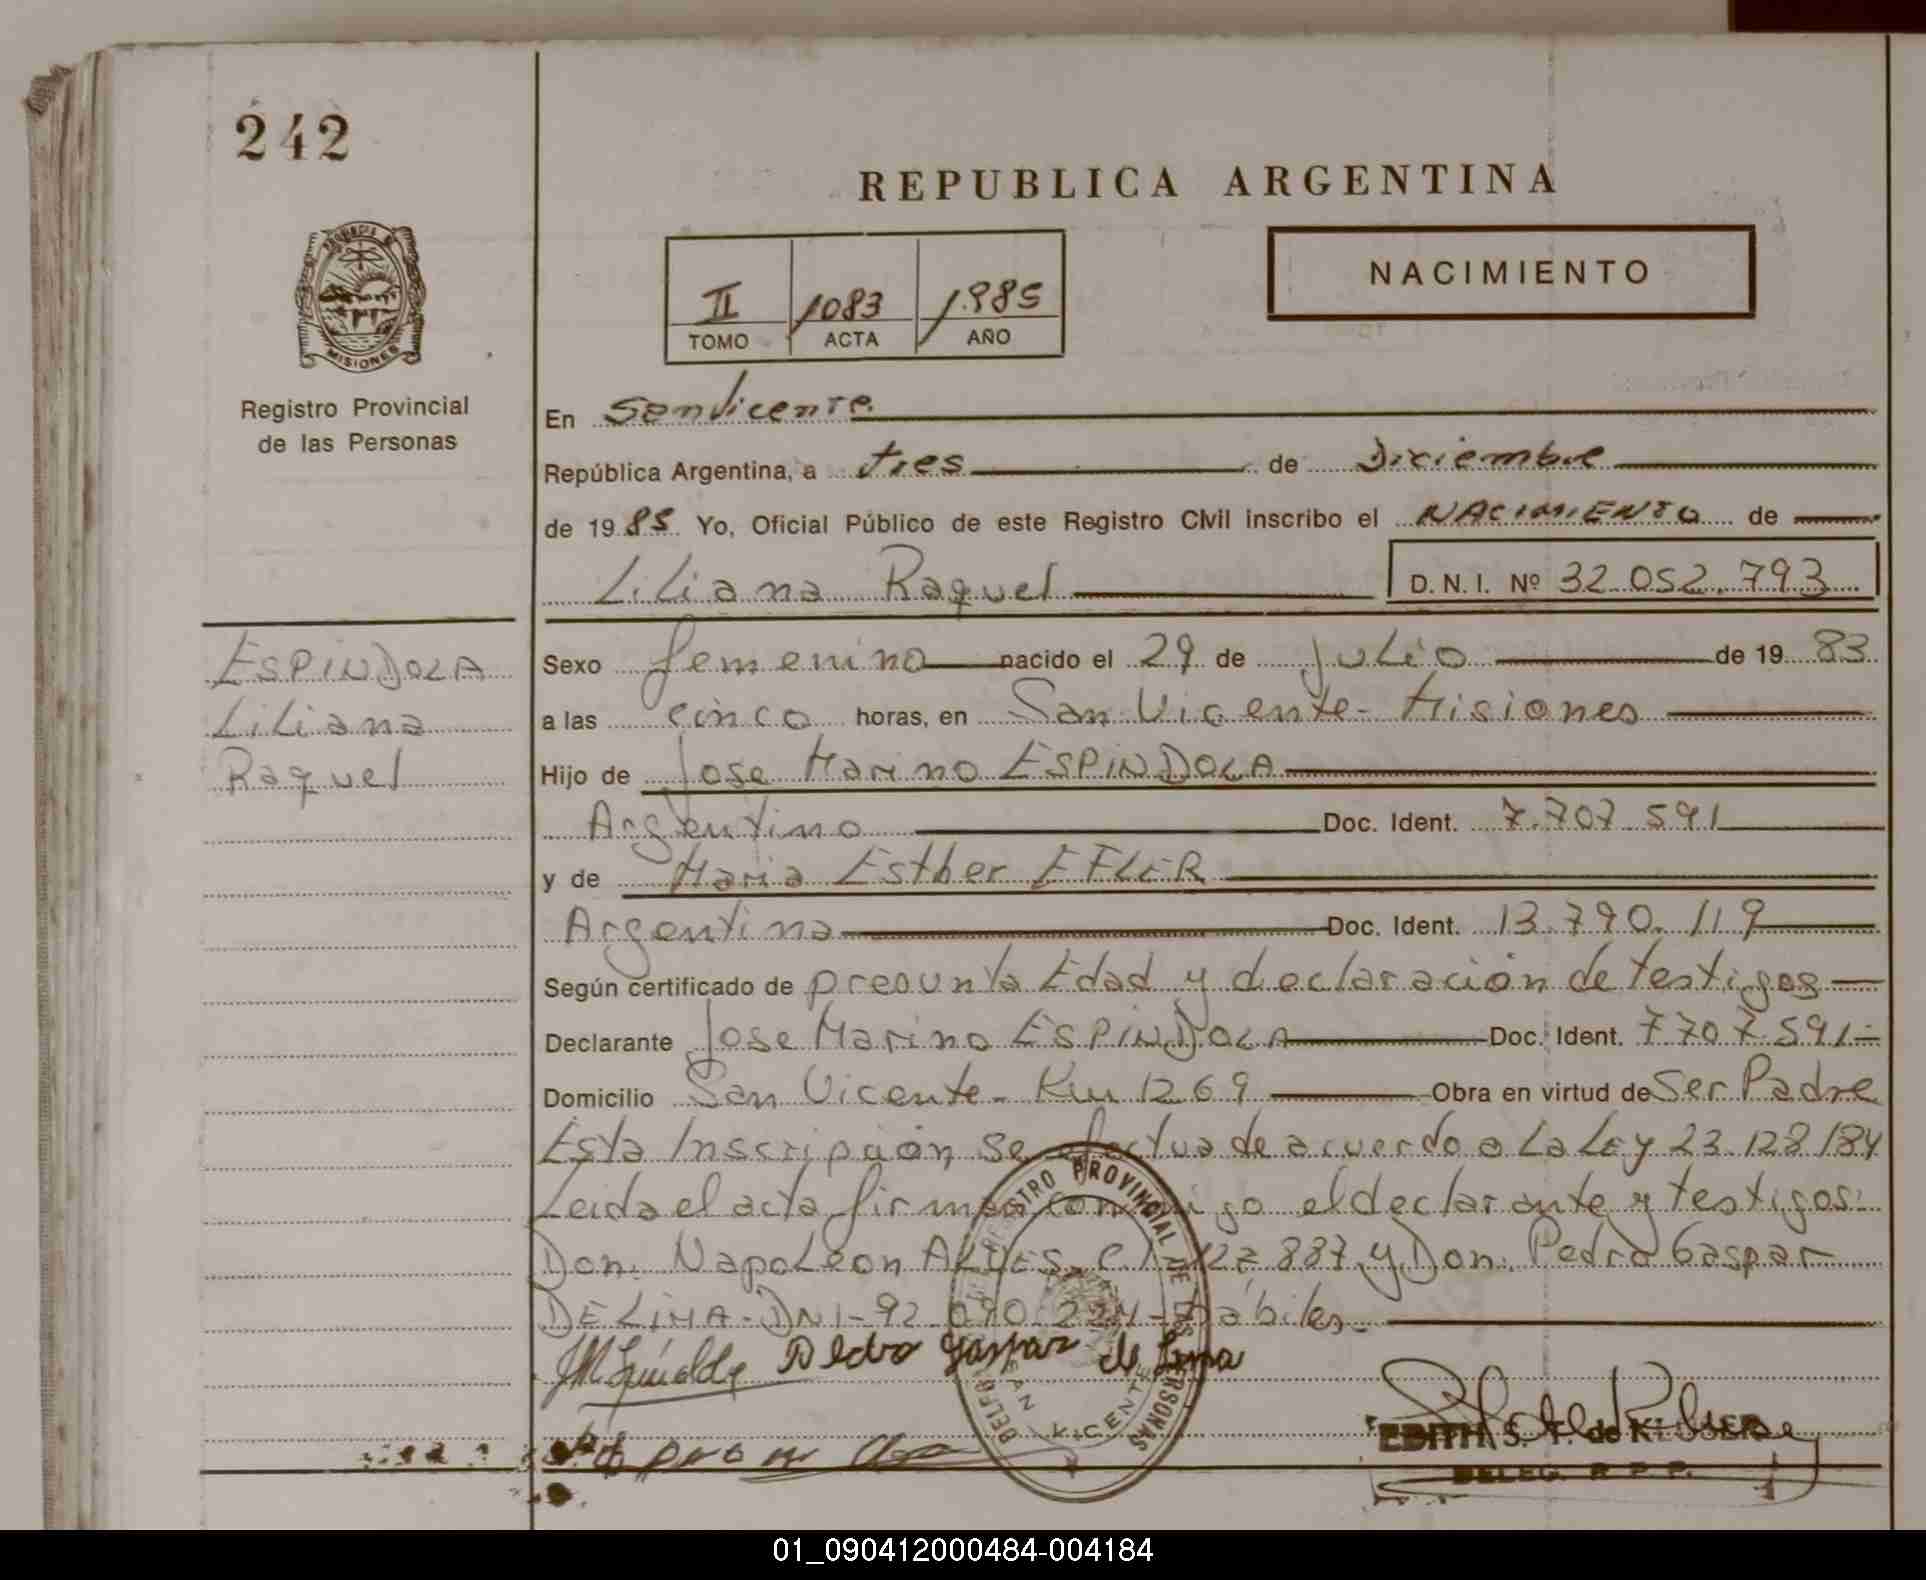 242
REPUBLICA ARGENTINA
NACIMIENTO
II 1083 1985
TOMO ACTA AÑO
MISIONES
Registro Provincial
de las Personas
En San Vicente
República Argentina, a tres de Diciembre
de 1985 Yo, Oficial Público de este Registro Civil inscribo el NACIMIENTO de
Liliana Raquel D. N. I. Nº 32.052.793
ESPINDOLA
Liliana
Raquel
Sexo femenino nacido el 29 de Julio de 19 83
a las cinco horas, en San Vicente - Misiones
Hijo de Jose Marino ESPINDOLA
Argentino Doc. Ident. 7.707.591
y de Maria Esther EFLER
Argentina Doc. Ident. 13.790.119
Según certificado de presunta Edad y declaración de testigos
Declarante Jose Marino ESPINDOLA Doc. Ident. 7707.591
Domicilio San Vicente - Km 1269 Obra en virtud de Ser Padre
Esta Inscripción se efectua de acuerdo a La Ley 23.128/84
Leida el acta firman conmigo el declarante y testigos:
Don: Napoleon ALVES, C.I. 887 y Don: Pedro Gaspar
DE LIMA - DNI - 92.090.224 - Hábiles
Pedro Gaspar de Lima
REGISTRO PROVINCIAL DE LAS PERSONAS
SAN VICENTE
EDITH S. T. de
DELEG. R P P.
01_090412000484-004184